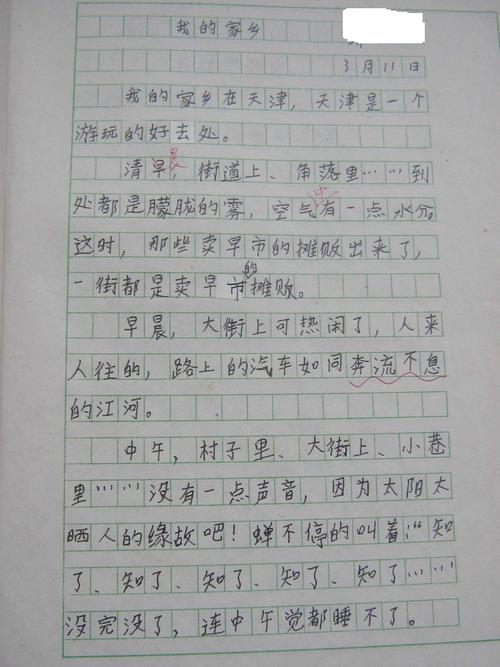 我的家乡
3月11日
我的家乡在天津，天津是一个
游玩的好去处。
清早晨，街道上、角落里……到
处都是朦胧的雾，空气中有一点水分。
这时，那些卖早市的摊贩出来了，
一街都是卖早市的摊贩。
早晨，大街上可热闹了，人来
人往的，路上的汽车如同奔流不息
的江河。
中午，村子里、大街上、小巷
里……没有一点声音，因为太阳太
晒人的缘故吧！蝉不停的叫着：“知
了、知了、知了、知了、知了……
没完没了，连中午觉都睡不了。